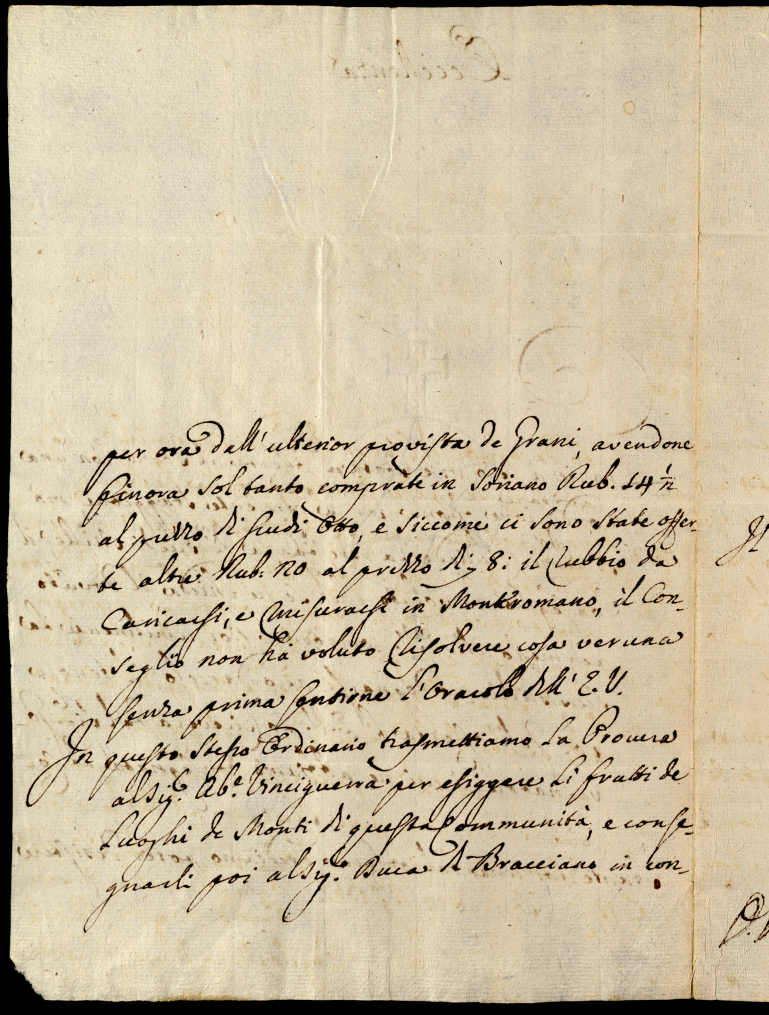 per ora dall' ulterior provista de Grani, avendone
finora sol tanto comprate in Soriano Rub. 14 ½
al prezzo di scudi Otto, e siccome ci sono state offer-
te altre Rub: 20 al prezzo di 8: il Rubbio da
Caricarsi, e Misurarsi in Monteromano, il Con-
seglio non hà voluto Risolvere cosa veruna
senza prima sentirne l'Oracolo dell' E. V.
In questo stesso Ordinario trasmettiamo la Procura
al Sig.r Ab.e Vinciguerra per esiggere li frutti de
Luoghi de Monti di questa Communità, e conse-
gnarli poi al Sig.r Duca di Bracciano in con-